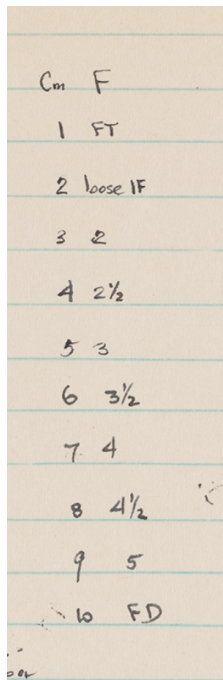 Cm F
1 FT
2 loose 1F
3 2
4 2½
5 3
6 3½
7 4
8 4½
9 5
10 FD